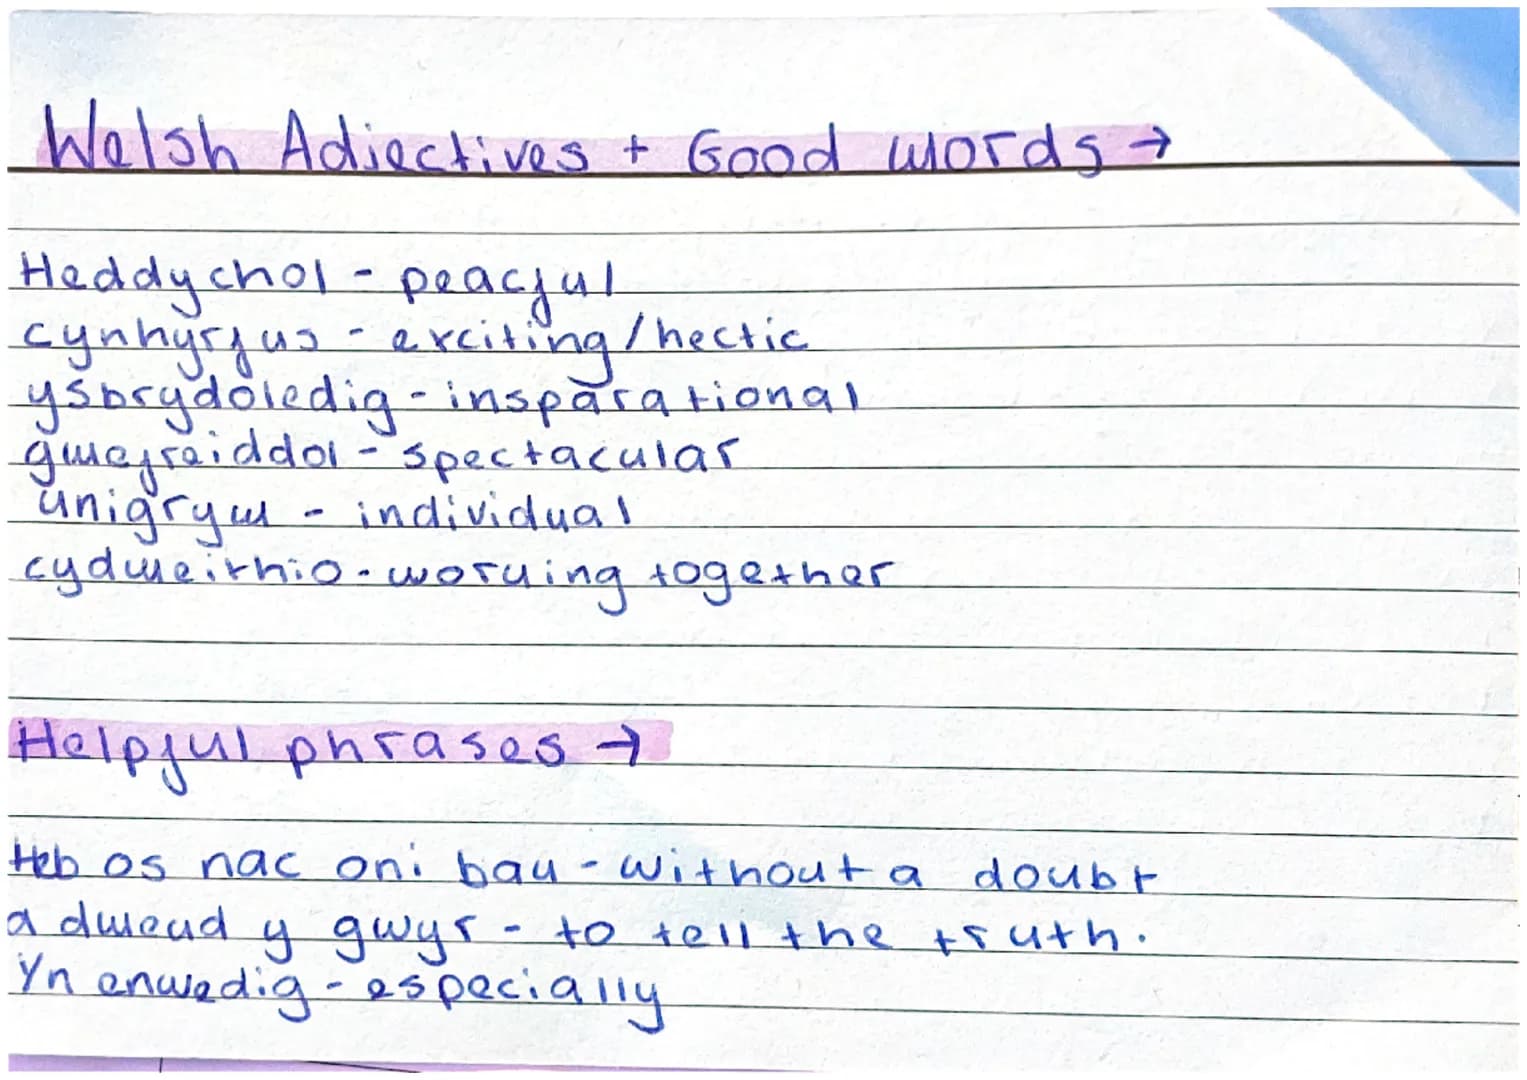 Welsh Adjectives + Good words →
Heddychol - peacful
cynhyrfus - exciting/hectic
ysbrydoledig - insparational
gwefreiddol - spectacular
unigryw - individual
cydweithio - working together
Helpful phrases →
Heb os nac oni bau - without a doubt
a dweud y gwyr - to tell the truth.
Yn enwedig - especially